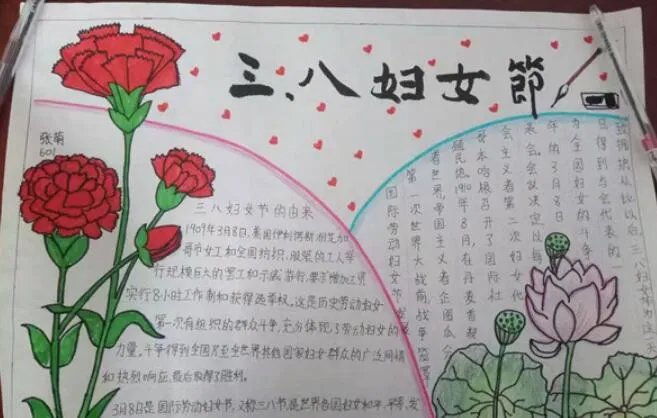 三、八妇女節
张萌
601
三八妇女节的由来
1909年3月8日,美国伊利诺斯州芝加
哥市女工和全国纺织、服装的工人举
行规模巨大的罢工和示威游行,要求增加工资
实行8小时工作制和获得选举权,这是历史劳动妇女
第一次有组织的群众斗争,充分体现了劳动妇女的
力量,斗争得到全国乃至全世界其他国家妇女群众的广泛同情
和热烈响应,最后取得了胜利。
3月8日是国际劳动妇女节,又称三八节,是世界各国妇女和平、平等、发
致拥护从此以后三八妇女
得到与会代表的一
为全国妇女的斗争
年的3月8日
表会会议决定以每
会主义者第二次妇女代
哥本哈根召开了国际社
殖民地1910年8月在丹麦首都
者世界帝国主义者企图瓜分
第一次世界大战前战争
国际劳动妇女节